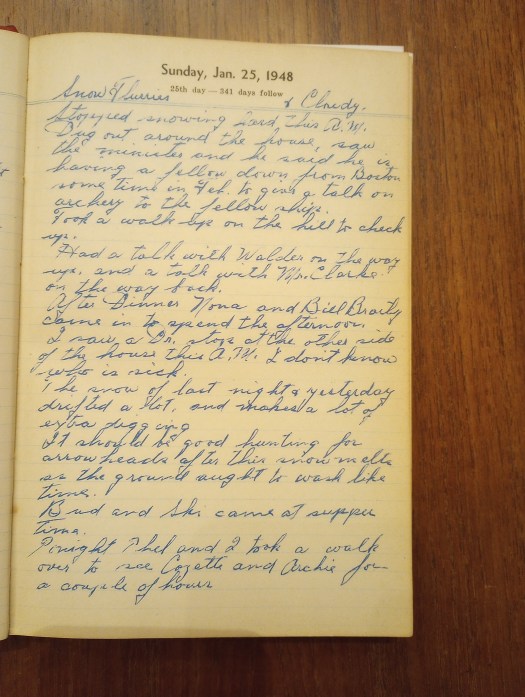 Sunday, Jan. 25, 1948
25th day — 341 days follow
Snow Flurries & Cloudy.
Stopped snowing hard this A.M.
Dug out around the house, saw
the minister and he said he is
having a fellow down from Boston
some time in Feb. to give a talk on
archery to the fellow ship.
Took a walk up on the hill to check
up.
Had a talk with Walder on the way
up, and a talk with Mr. Clarke
on the way back.
After Dinner Nona and Bill
came in to spend the afternoon.
I saw a Dr. stop at the other side
of the house this A.M. I don't know
who is sick.
The snow of last night & yesterday
drifted a lot, and makes a lot of
extra digging
It should be good hunting for
arrowheads after this snow melts
as the ground aught to wash like
time.
Bud and Ski came at supper
time.
Tonight Thel and I took a walk
over to see Cozette and Archie for
a couple of hours